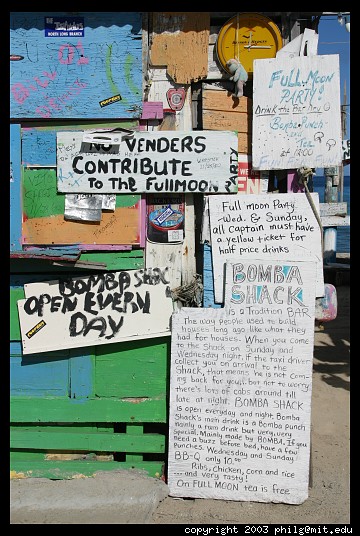 NORTH LONG BRANCH
FULL MOON
PARTY
Drink the Bar Hey
Bomba Punch
Tea
FREE
NO VENDERS
CONTRIBUTE
to the FULLMOON
PARTY
Full moon Party.
Wed. & Sunday,
all captain must have
a yellow ticket for
half price drinks
BOMBA SHAC
OPEN EVERY
DAY
BOMBA
SHACK
is a Tradition BAR
The way people used to build
houses long ago like what they
had for houses. When you come
to the Shack on Sunday and
Wednesday night, if the taxi driver
collect you on arrival to the
Shack, that means he is not com-
ing back for you,. but not to worry
there's lots of cabs around till
late at night. BOMBA SHACK
is open everyday and night. Bomba
Shack's main drink is a Bomba punch
mainly a rum drink but very, very
special. Mainly made by BOMBA. If you
need a buzz before bed, have a few
Punches. Wednesday and Sunday
BB-Q only 10.00
Ribs, Chicken, corn and rice
--- and very tasty!
On FULL MOON tea is free
copyright 2003 philg@mit.edu